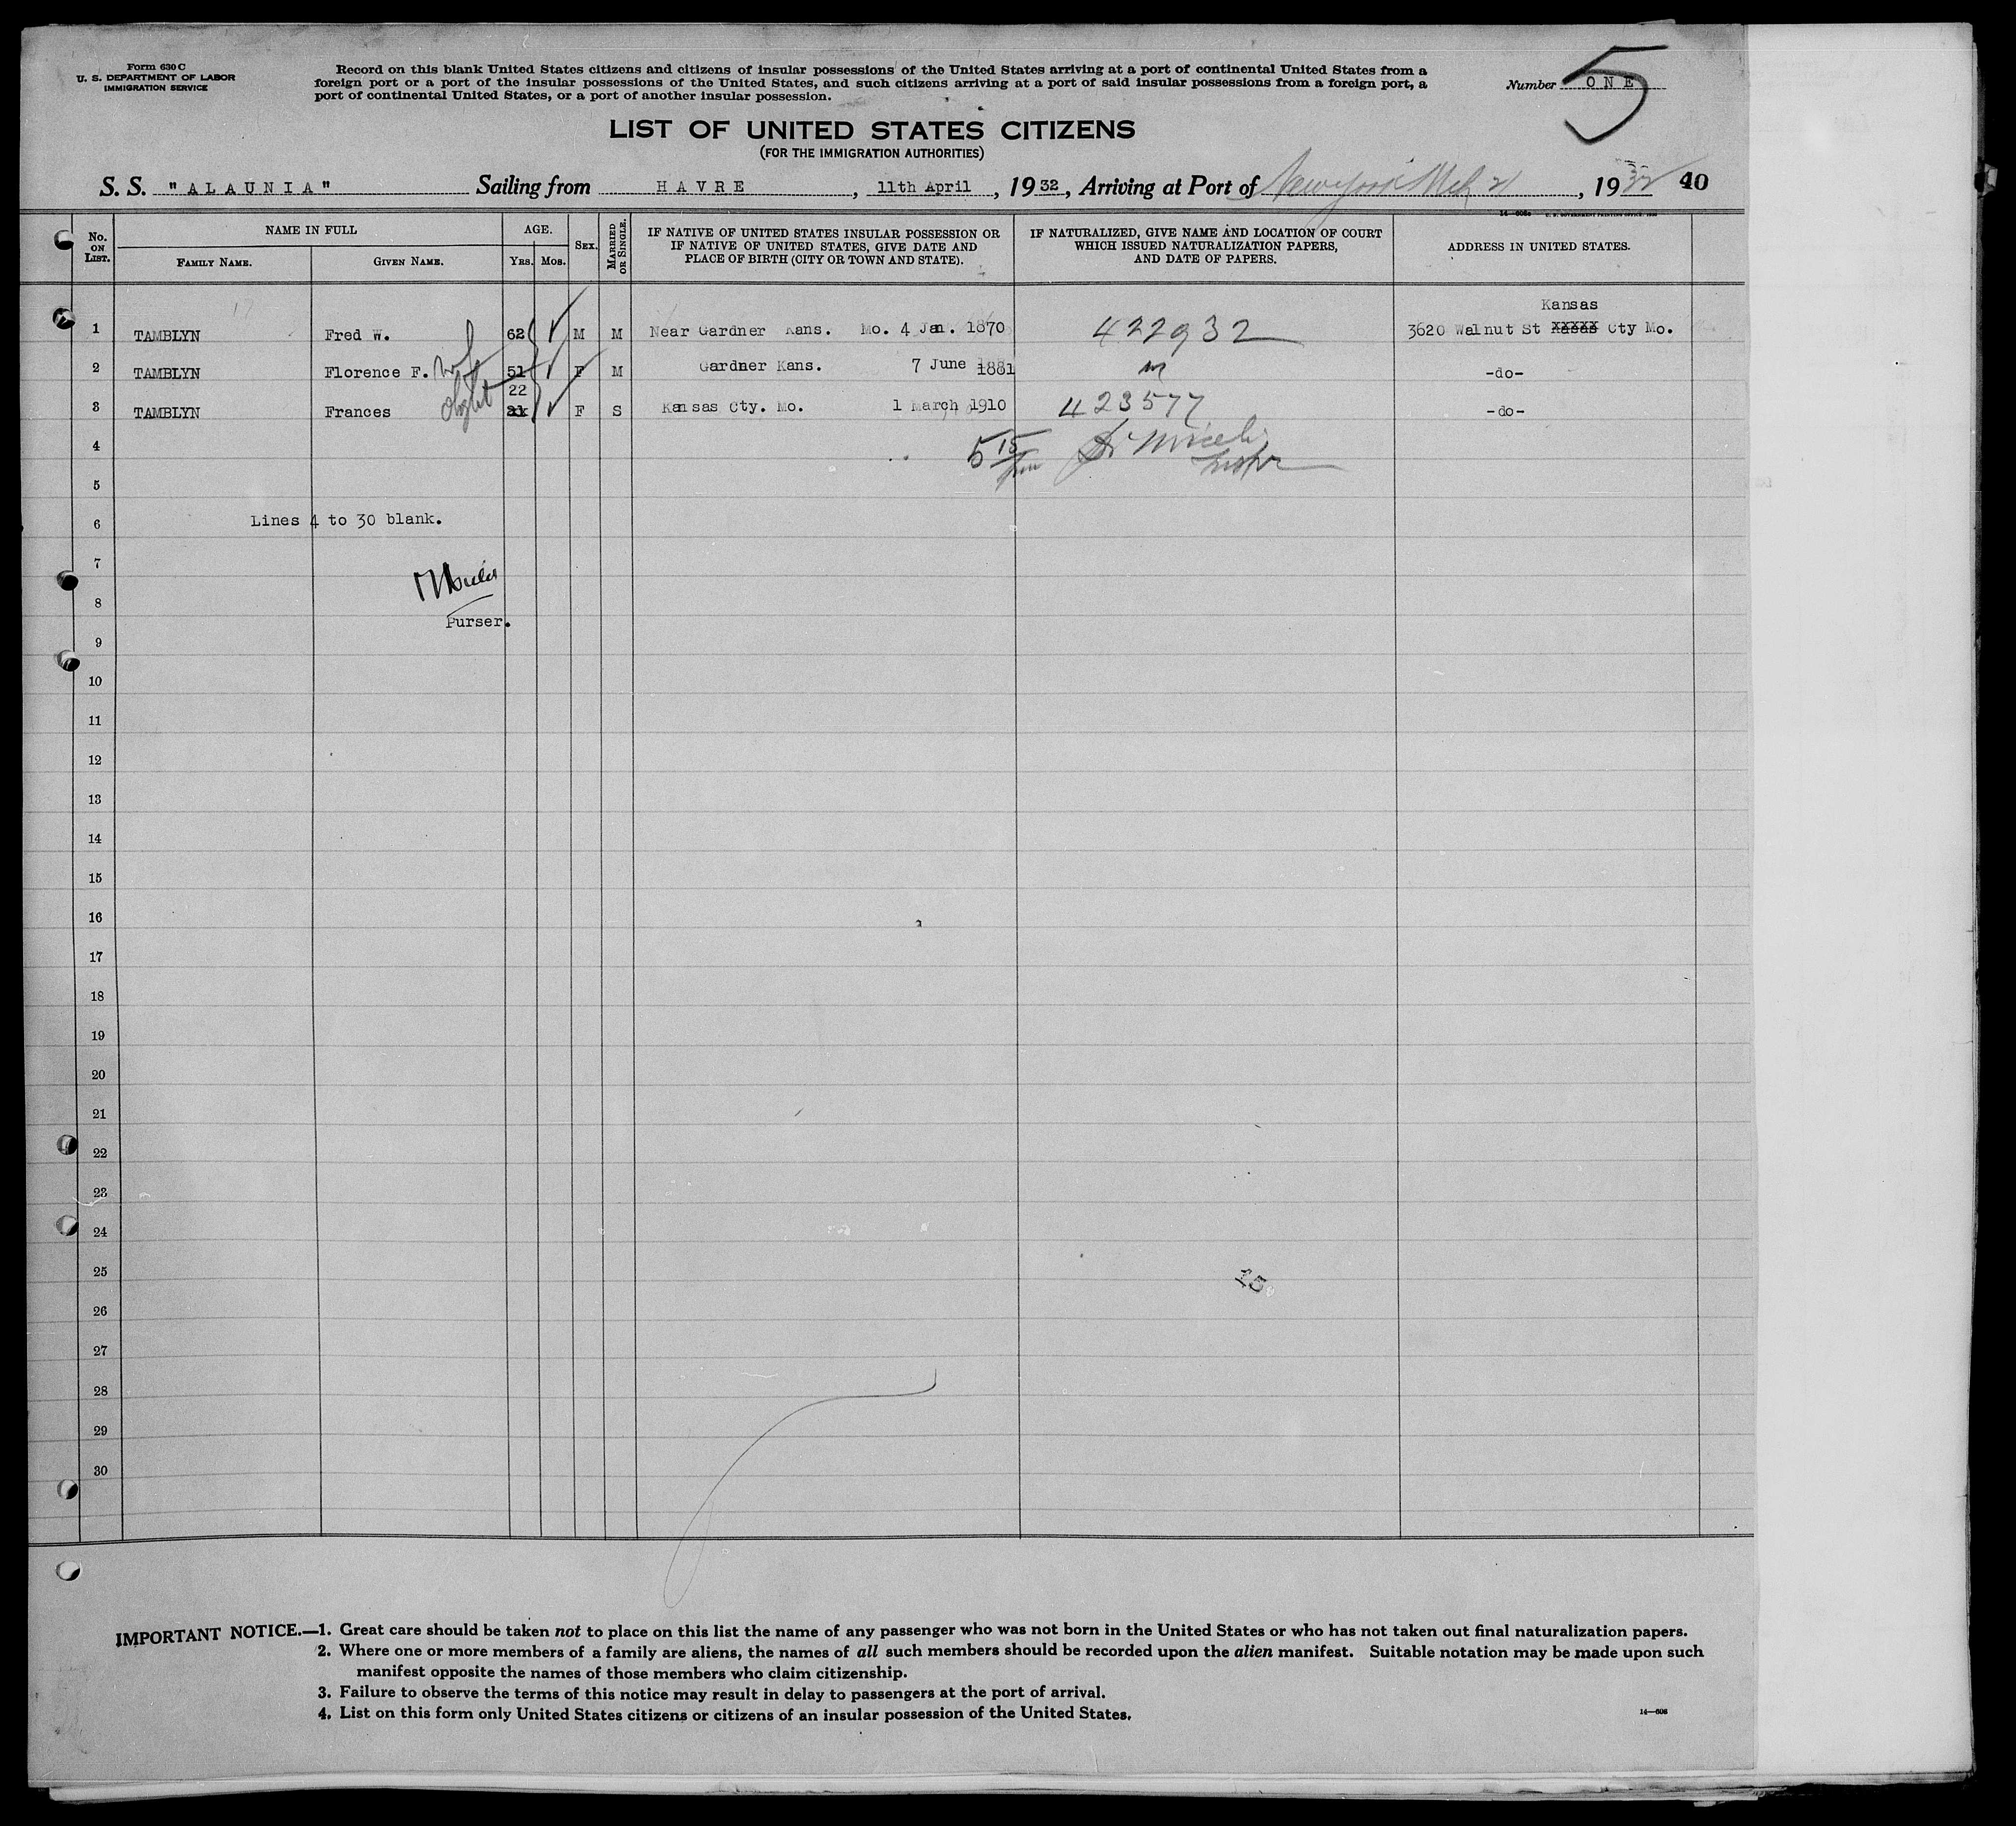 Form 630 C
U. S. DEPARTMENT OF LABOR
IMMIGRATION SERVICE
Record on this blank United States citizens and citizens of insular possessions of the United States arriving at a port of continental United States from a
foreign port or a port of the insular possessions of the United States, and such citizens arriving at a port of said insular possessions from a foreign port, a
port of continental United States, or a port of another insular possession.
Number ONE
5
LIST OF UNITED STATES CITIZENS
(FOR THE IMMIGRATION AUTHORITIES)
S. S. "ALAUNIA" Sailing from HAVRE, 11th April, 1932, Arriving at Port of New York, 1932 40
No. ON LIST.
NAME IN FULL
FAMILY NAME. GIVEN NAME.
AGE.
YRS. MOS.
SEX.
MARRIED OR SINGLE.
IF NATIVE OF UNITED STATES INSULAR POSSESSION OR
IF NATIVE OF UNITED STATES, GIVE DATE AND
PLACE OF BIRTH (CITY OR TOWN AND STATE).
IF NATURALIZED, GIVE NAME AND LOCATION OF COURT
WHICH ISSUED NATURALIZATION PAPERS,
AND DATE OF PAPERS.
ADDRESS IN UNITED STATES.
Kansas
1 TAMBLYN Fred W. 62 M M Near Gardner Kans. Mo. 4 Jan. 1870 422932 3620 Walnut St xxxxx Cty Mo.
2 TAMBLYN Florence F. wf 51 F M Gardner Kans. 7 June 1881 -do-
22
3 TAMBLYN Frances F S Kansas Cty. Mo. 1 March 1910 423577 -do-
4 5 15
5
6 Lines 4 to 30 blank.
7
8
Purser.
9
10
11
12
13
14
15
16
17
18
19
20
21
22
23
24
25
15
26
27
28
29
30
IMPORTANT NOTICE.—1. Great care should be taken not to place on this list the name of any passenger who was not born in the United States or who has not taken out final naturalization papers.
2. Where one or more members of a family are aliens, the names of all such members should be recorded upon the alien manifest. Suitable notation may be made upon such
manifest opposite the names of those members who claim citizenship.
3. Failure to observe the terms of this notice may result in delay to passengers at the port of arrival.
4. List on this form only United States citizens or citizens of an insular possession of the United States.
14—606